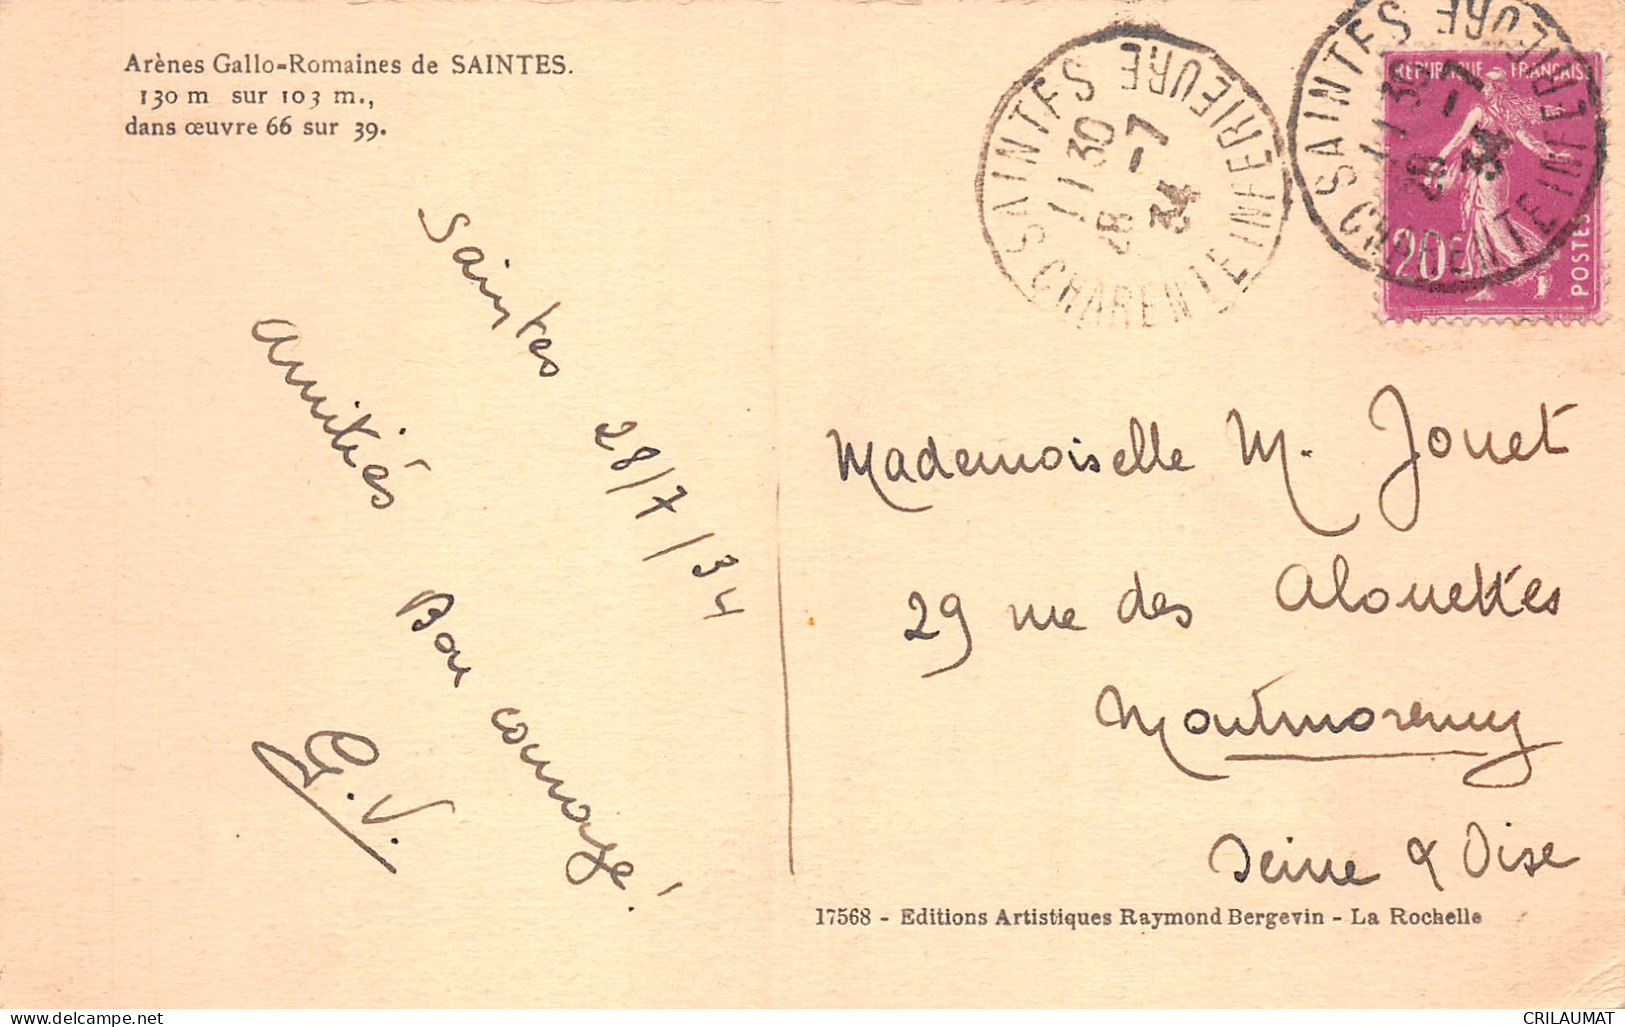 Arènes Gallo-Romaines de SAINTES.
130 m sur 103 m.,
dans œuvre 66 sur 39.
Saintes 28/7/34
Amitiés
Bon courage!
G.V.
SAINTES CHARENTE INFERIEURE
11 30
28 -7
34
SAINTES CHARENTE INFERIEURE
11 30
28 -7
34
RÉPUBLIQUE FRANÇAISE
20
POSTES
Mademoiselle M. Jouet
29 rue des Alouettes
Montmorency
Seine & Oise
17568 - Editions Artistiques Raymond Bergevin - La Rochelle
CRILAUMAT